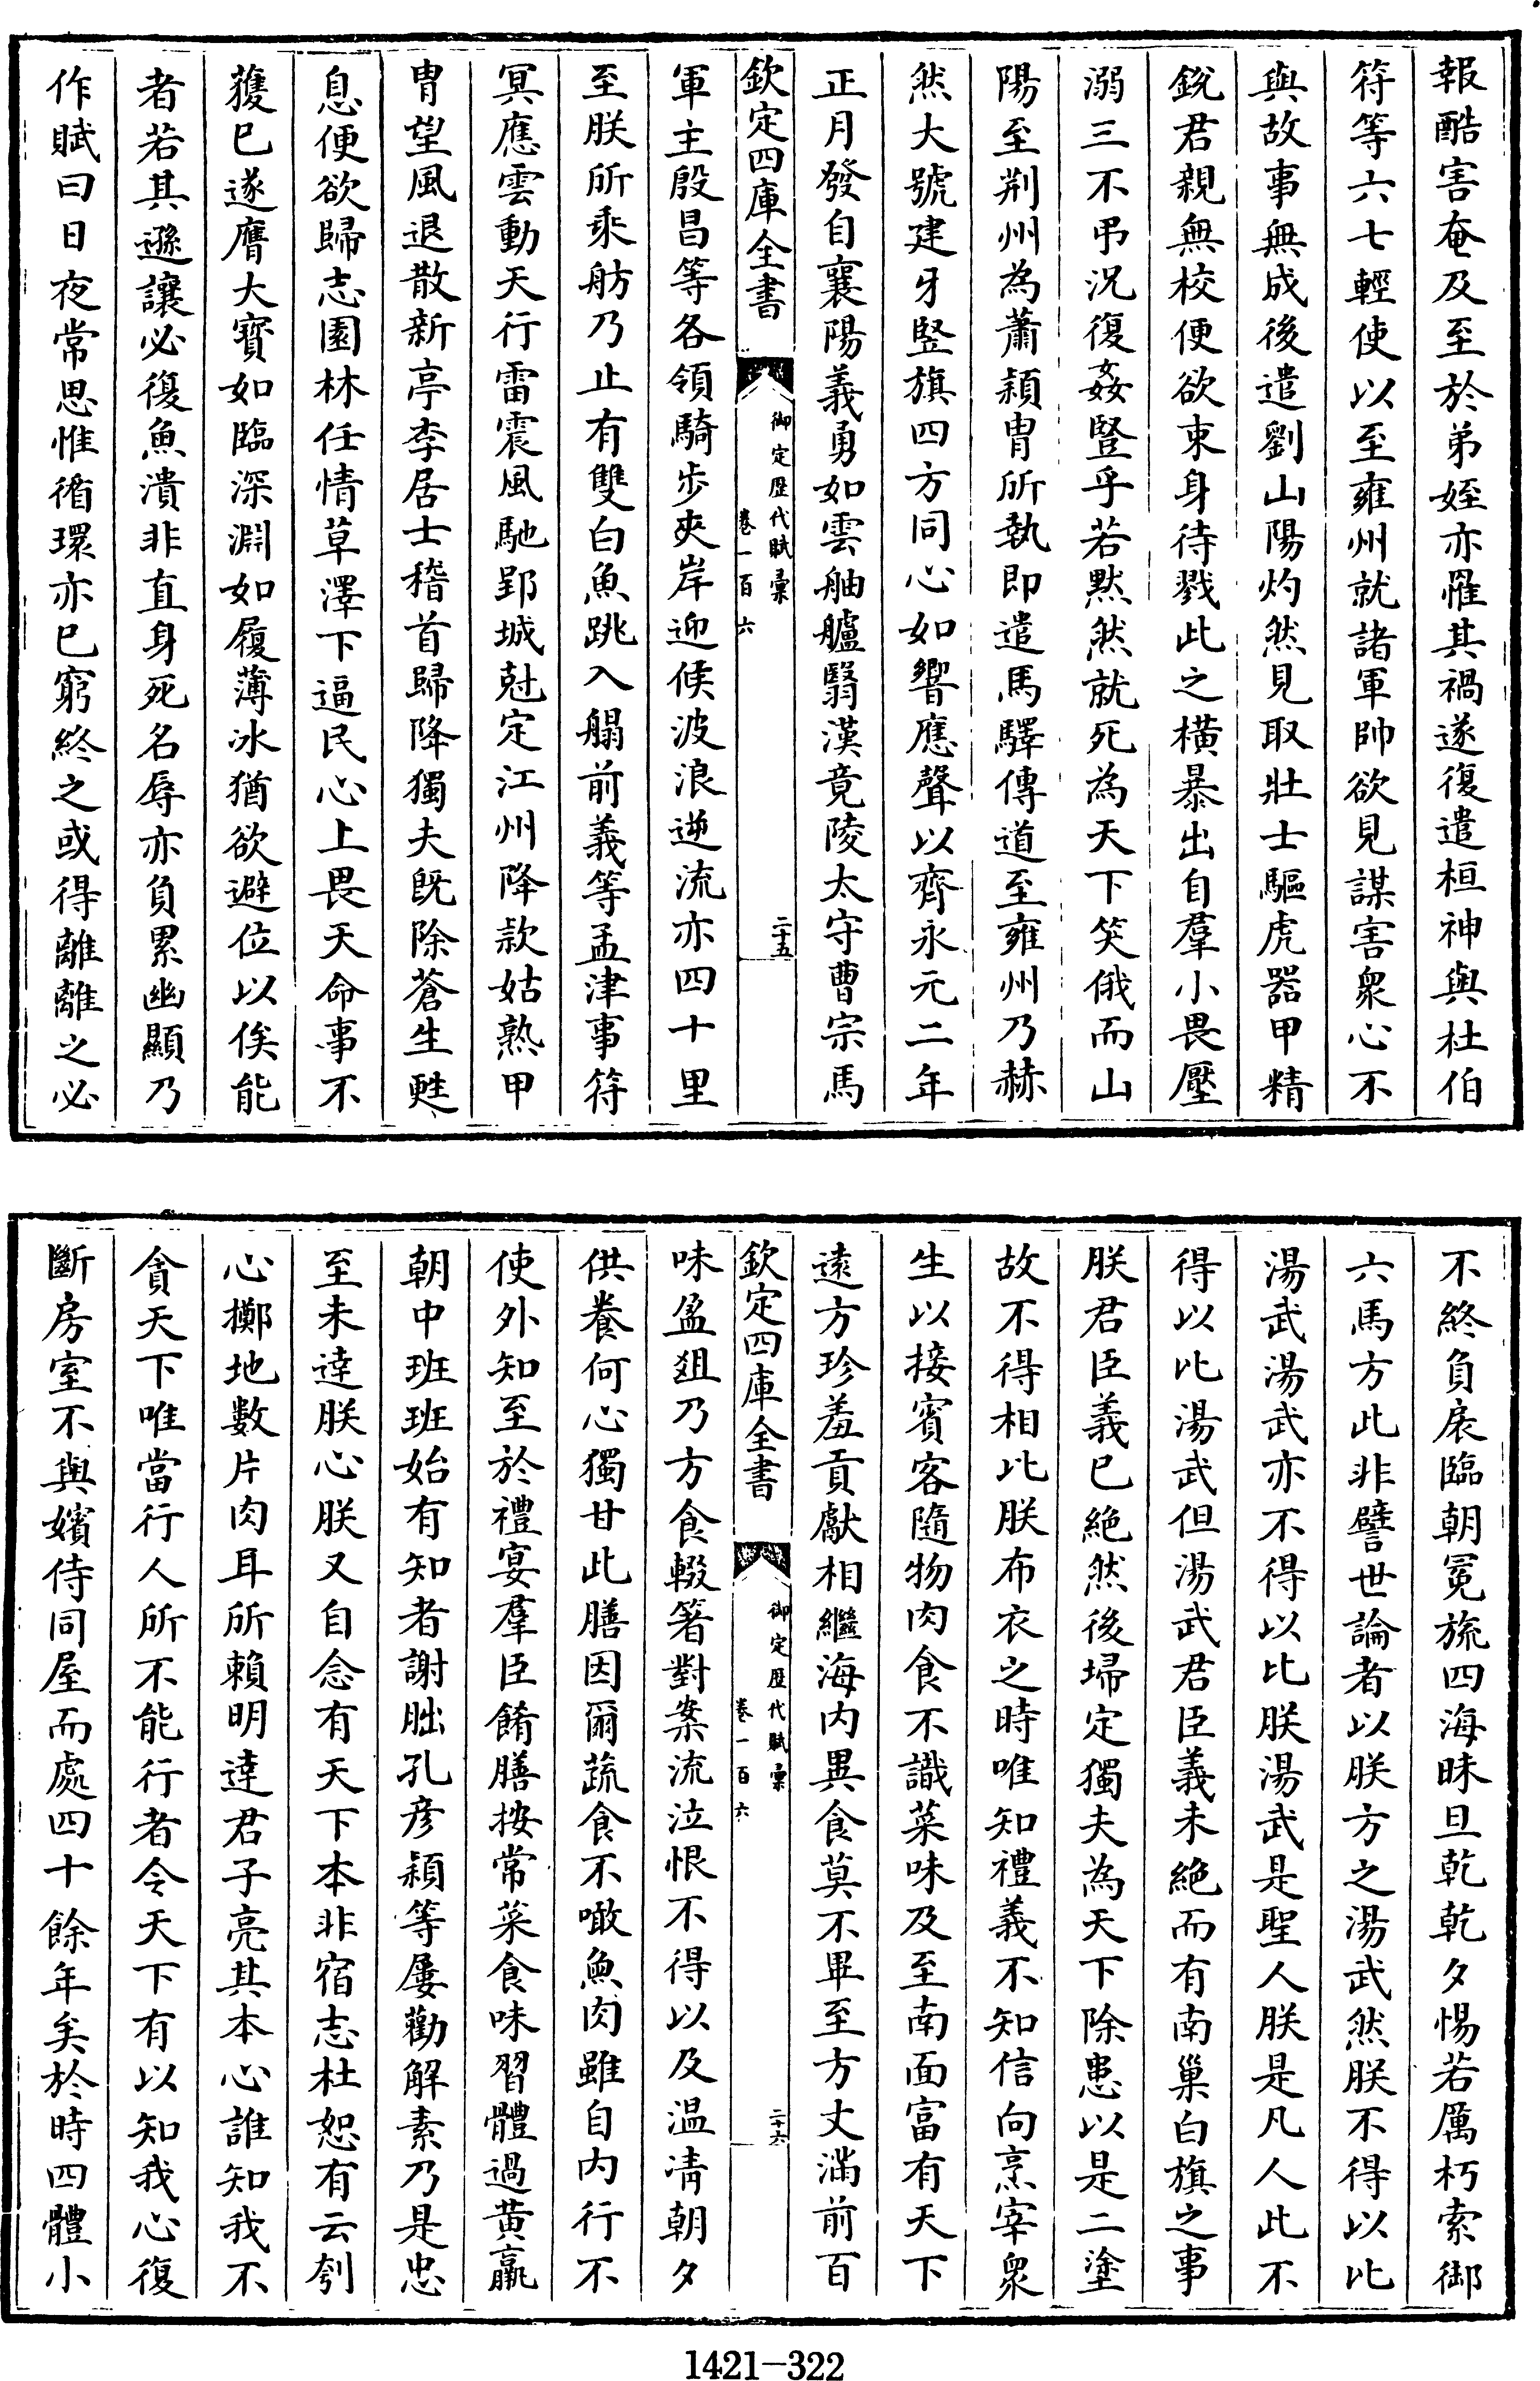 報酷害奄及至於弟姪亦罹其禍遂復遣桓神與杜伯
符等六七輕使以至雍州就諸軍帥欲見謀害衆心不
與故事無成後遣劉山陽灼然見取壯士驅虎器甲精
銳君親無校便欲束身待戮此之橫暴出自羣小畏壓
溺三不弔況復姦豎乎若默然就死為天下笑俄而山
陽至荆州為蕭穎胄所執即遣馬驛傳道至雍州乃赫
然大號建牙豎旗四方同心如響應聲以齊永元二年
正月發自襄陽義勇如雲舳艫翳漢竟陵太守曹宗馬
欽定四庫全書
御定歴代賦彙
卷一百六
二十五
軍主殷昌等各領騎步夾岸迎候波浪逆流亦四十里
至朕所乘舫乃止有雙白魚跳入䑽前義等孟津事符
冥應雲動天行雷震風馳郢城尅定江州降款姑熟甲
胄望風退散新亭李居士稽首歸降獨夫既除蒼生甦
息便欲歸志園林任情草澤下逼民心上畏天命事不
獲已遂膺大寶如臨深淵如履薄冰猶欲避位以俟能
者若其遜讓必復魚潰非直身死名辱亦負累幽顯乃
作賦曰日夜常思惟循環亦已窮終之或得離離之必
不終負扆臨朝冕旒四海昧旦乾乾夕惕若厲朽索御
六馬方此非譬世論者以朕方之湯武然朕不得以比
湯武湯武亦不得以比朕湯武是聖人朕是凡人此不
得以比湯武但湯武君臣義未絶而有南巢白旗之事
朕君臣義已絶然後埽定獨夫為天下除患以是二塗
故不得相比朕布衣之時唯知禮義不知信向烹宰衆
生以接賓客隨物肉食不識菜味及至南面富有天下
遠方珍羞貢獻相繼海内異食莫不畢至方丈滿前百
欽定四庫全書
御定歴代賦彙
卷一百六
二十六
味盈爼乃方食輟箸對案流泣恨不得以及温凊朝夕
供養何心獨甘此膳因爾蔬食不噉魚肉雖自内行不
使外知至於禮宴羣臣餚膳按常菜食味習體過黄羸
朝中班班始有知者謝朏孔彦穎等屢勸解素乃是忠
至未逹朕心朕又自念有天下本非宿志杜恕有云刳
心擲地數片肉耳所賴明逹君子亮其本心誰知我不
貪天下唯當行人所不能行者令天下有以知我心復
斷房室不與嬪侍同屋而處四十餘年矣於時四體小
1421-322